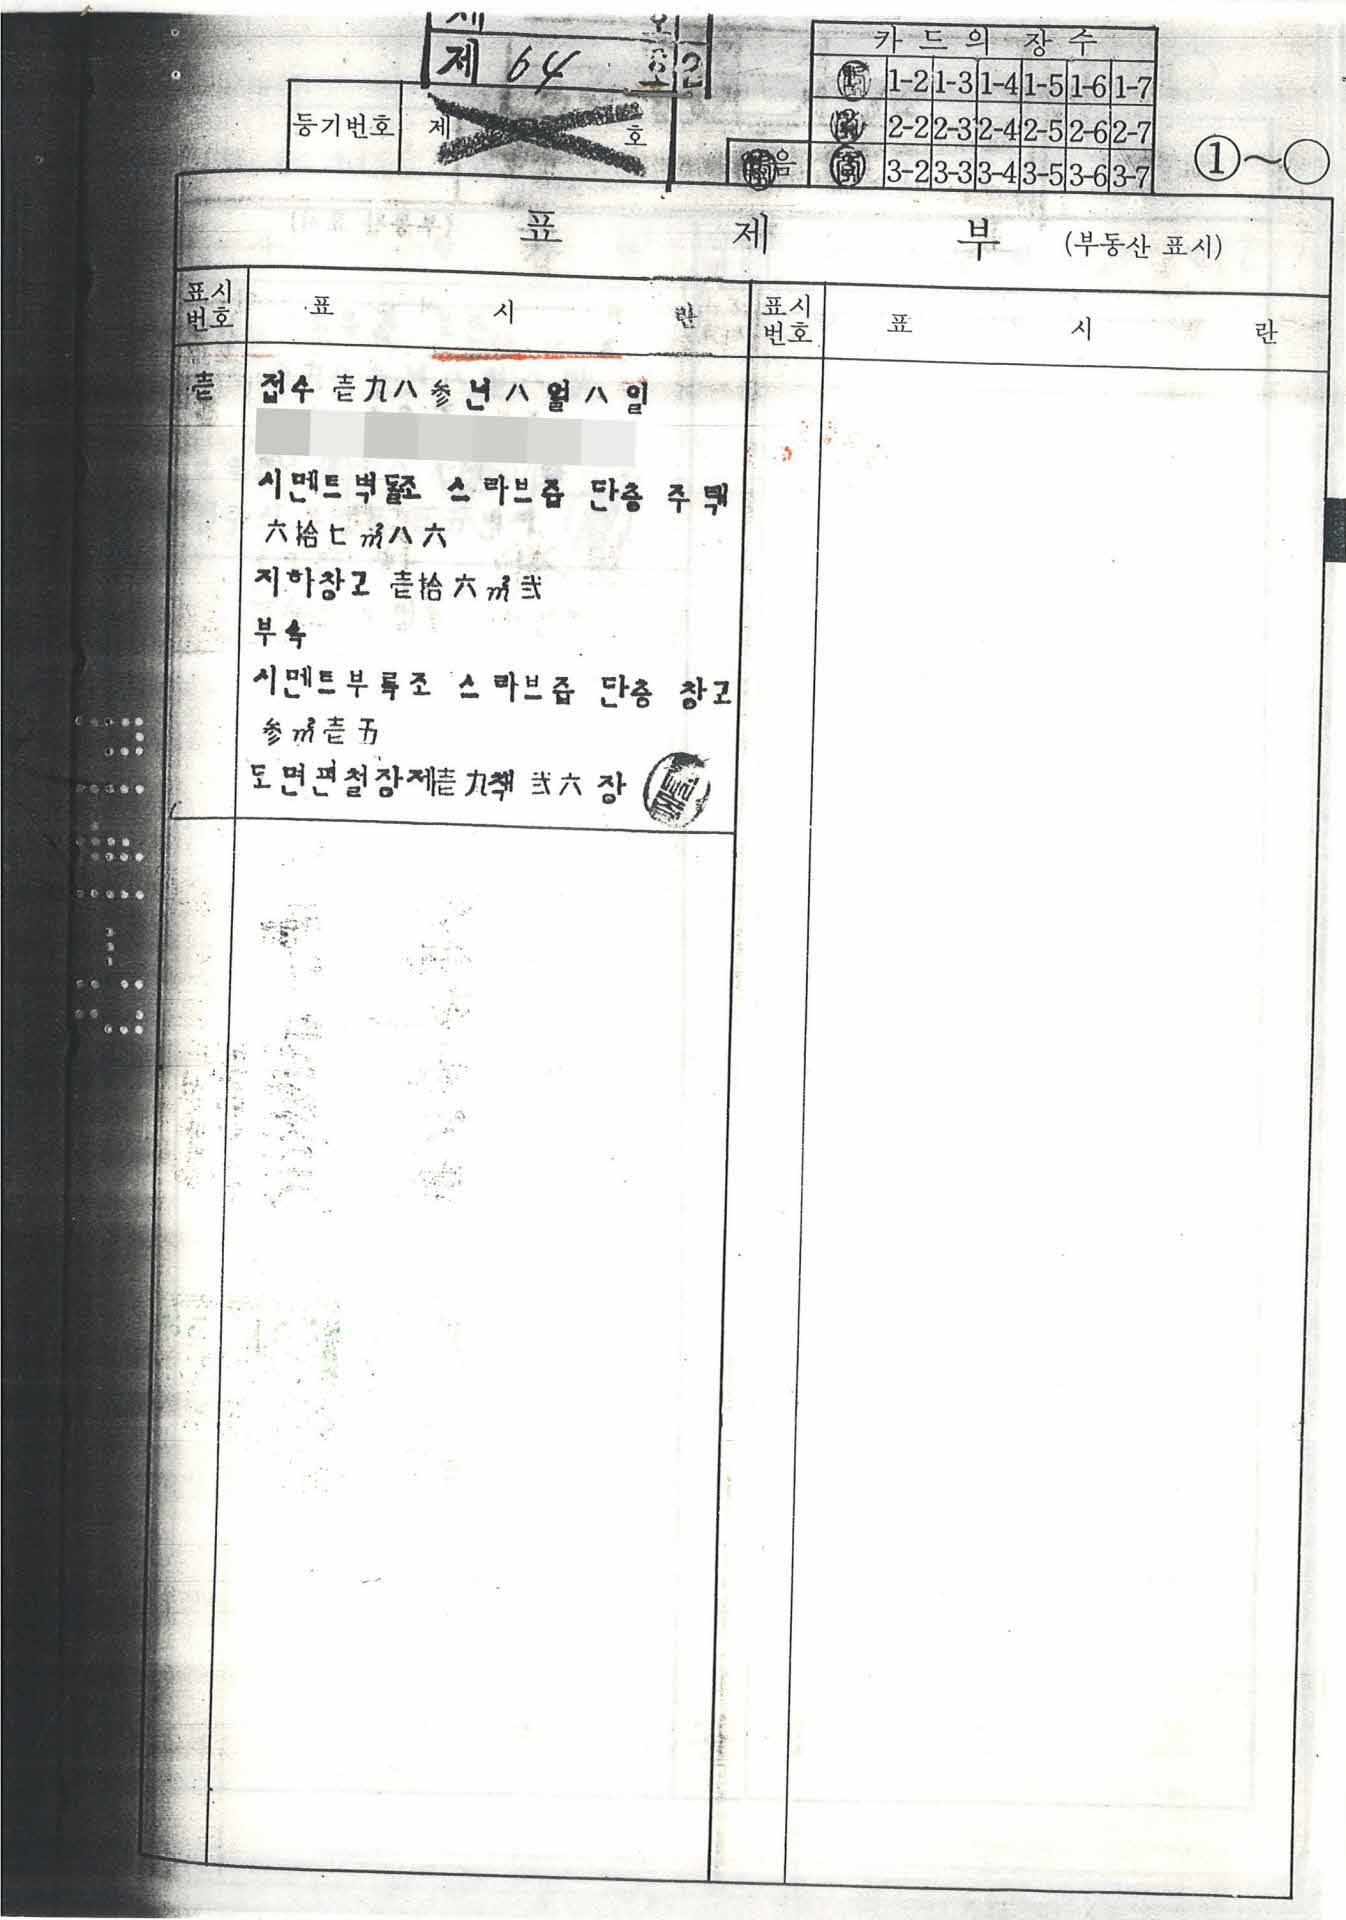 제 64 호 2
등기번호 제 호
카드의 장수
1-2 1-3 1-4 1-5 1-6 1-7
2-2 2-3 2-4 2-5 2-6 2-7
음 3-2 3-3 3-4 3-5 3-6 3-7
①~○
표 제 부 (부동산 표시)
표시번호 표 시 란 표시번호 표 시 란
壱 접수 壱九八参년八월八일
시멘트벽돌조 스라브즙 단층 주택
六拾七㎡八六
지하창고 壱拾六㎡弐
부속
시멘트부록조 스라브즙 단층 창고
参㎡壱五
도면편철장제壱九책 弐六장